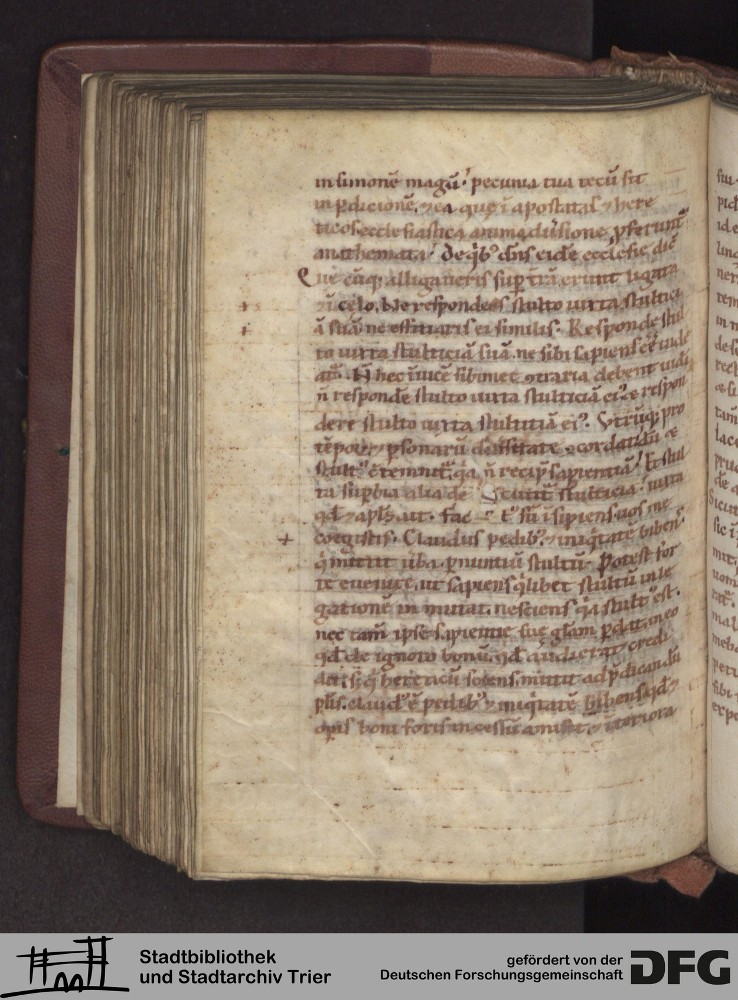 in simonē magū. pecunia tua tecū sit
in ꝑdicionē. ⁊ ea que ī apostatas ⁊ here
ticos ecclesiastica animaduersione ꝓferunt᷑
anathemata. De qͥbꝰ dn̄s eidē ecclesie dic̄
Que cūqꝫ alligaueris suꝑ trā erunt ligata
⁊ ī celo. Ne respondeas stulto iuxta stultici
ā suā ne efficiaris ei similis. Responde stul
to iuxta stulticiā suā. ne sibi sapiens eē uide
at᷑. N̄ hec īuicē sibimet ⁊traria debent uidi
n̄ responde stulto iuxta stulticiā eiꝰ. ⁊ respon
dere stulto iuxta stulticiā eiꝰ. Vtrūqꝫ pro
tēpoꝝ ⁊ ꝑsonarū diuersitate ⁊cordandū ē
stultꝰ ⁊temnit᷑. qͥa n̄ recipit sapientiā. Et stul
ta suꝑbia alia de cutit᷑ stulticia. iuxta
qd̄ ⁊ apls̄ ait. Fac tꝰ sū īsipiens uos me
coegistis. Claudus pedibꝰ ⁊ iniqͥtatē bibens
qͥ mittit ūba ꝑ nuntiū stultū. Potest for
te euenire. ut sapiens qͥlibet stultū in le
gationē mittat. nesciens qͥa stultꝰ est.
nec tam̄ ipse sapientie sue glām ꝑdat. in eo
qd̄ de ignoto bonū qd̄ audierat credi
dit. sꝫ qͥ hereticū sciens mittit ad p̄dicandū
pl̄is. claudꝰ ē pedibꝰ ⁊ iniqͥtatē bibens. qd̄ ⁊
opis boni foris incessū amisit ⁊ īteriora
Stadtbibliothek
und Stadtarchiv Trier
gefördert von der
Deutschen Forschungsgemeinschaft
DFG